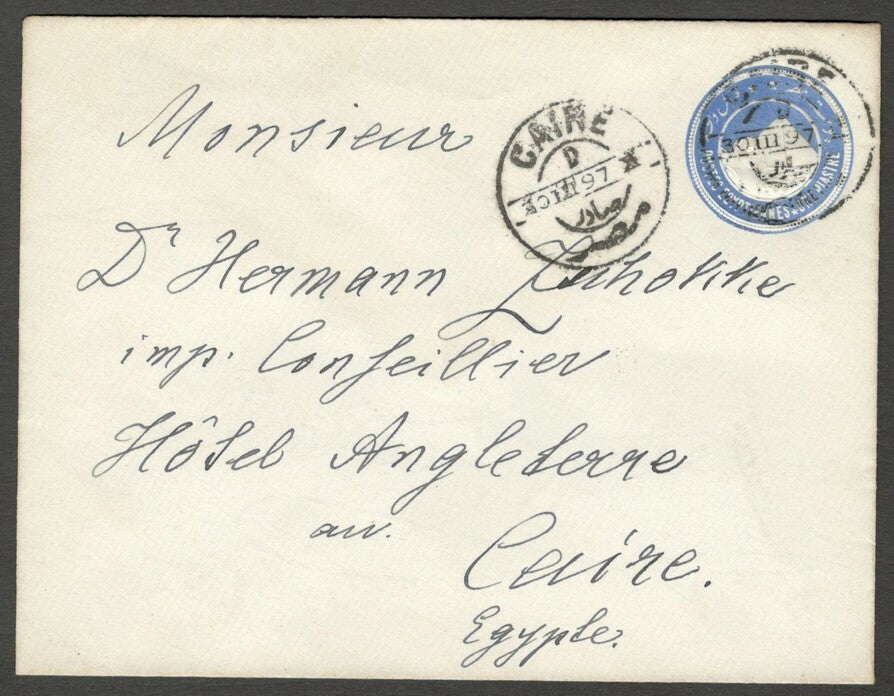 Monsieur
Dr Hermann Zschokke
imp. Conseillier
Hôtel Angleterre
au.
Caire.
Egypte.
CAIRE
D
97
صادر
مصر
30 III 97
POSTES EGYPTIENNES ★ UNE PIASTRE